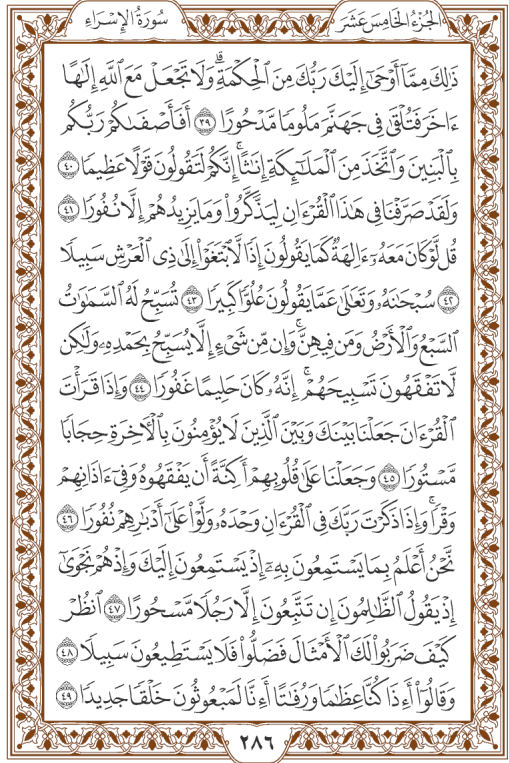 سُورَةُ الإِسْرَاءِ
الجُزْءُ الخَامِسَ عَشَرَ
ذَٰلِكَ مِمَّآ أَوْحَىٰٓ إِلَيْكَ رَبُّكَ مِنَ ٱلْحِكْمَةِۗ وَلَا تَجْعَلْ مَعَ ٱللَّهِ إِلَٰهًا
ءَاخَرَ فَتُلْقَىٰ فِى جَهَنَّمَ مَلُومًا مَّدْحُورًا ٣٩ أَفَأَصْفَىٰكُمْ رَبُّكُم
بِٱلْبَنِينَ وَٱتَّخَذَ مِنَ ٱلْمَلَٰٓئِكَةِ إِنَٰثًاۚ إِنَّكُمْ لَتَقُولُونَ قَوْلًا عَظِيمًا ٤٠
وَلَقَدْ صَرَّفْنَا فِى هَٰذَا ٱلْقُرْءَانِ لِيَذَّكَّرُوا۟ وَمَا يَزِيدُهُمْ إِلَّا نُفُورًا ٤١
قُل لَّوْ كَانَ مَعَهُۥٓ ءَالِهَةٌ كَمَا يَقُولُونَ إِذًا لَّٱبْتَغَوْا۟ إِلَىٰ ذِى ٱلْعَرْشِ سَبِيلًا
٤٢ سُبْحَٰنَهُۥ وَتَعَٰلَىٰ عَمَّا يَقُولُونَ عُلُوًّا كَبِيرًا ٤٣ تُسَبِّحُ لَهُ ٱلسَّمَٰوَٰتُ
ٱلسَّبْعُ وَٱلْأَرْضُ وَمَن فِيهِنَّۚ وَإِن مِّن شَىْءٍ إِلَّا يُسَبِّحُ بِحَمْدِهِۦ وَلَٰكِن
لَّا تَفْقَهُونَ تَسْبِيحَهُمْۗ إِنَّهُۥ كَانَ حَلِيمًا غَفُورًا ٤٤ وَإِذَا قَرَأْتَ
ٱلْقُرْءَانَ جَعَلْنَا بَيْنَكَ وَبَيْنَ ٱلَّذِينَ لَا يُؤْمِنُونَ بِٱلْـَٔاخِرَةِ حِجَابًا
مَّسْتُورًا ٤٥ وَجَعَلْنَا عَلَىٰ قُلُوبِهِمْ أَكِنَّةً أَن يَفْقَهُوهُ وَفِىٓ ءَاذَانِهِمْ
وَقْرًاۚ وَإِذَا ذَكَرْتَ رَبَّكَ فِى ٱلْقُرْءَانِ وَحْدَهُۥ وَلَّوْا۟ عَلَىٰٓ أَدْبَٰرِهِمْ نُفُورًا ٤٦
نَّحْنُ أَعْلَمُ بِمَا يَسْتَمِعُونَ بِهِۦٓ إِذْ يَسْتَمِعُونَ إِلَيْكَ وَإِذْ هُمْ نَجْوَىٰٓ
إِذْ يَقُولُ ٱلظَّٰلِمُونَ إِن تَتَّبِعُونَ إِلَّا رَجُلًا مَّسْحُورًا ٤٧ ٱنظُرْ
كَيْفَ ضَرَبُوا۟ لَكَ ٱلْأَمْثَالَ فَضَلُّوا۟ فَلَا يَسْتَطِيعُونَ سَبِيلًا ٤٨
وَقَالُوٓا۟ أَءِذَا كُنَّا عِظَٰمًا وَرُفَٰتًا أَءِنَّا لَمَبْعُوثُونَ خَلْقًا جَدِيدًا ٤٩
٢٨٦